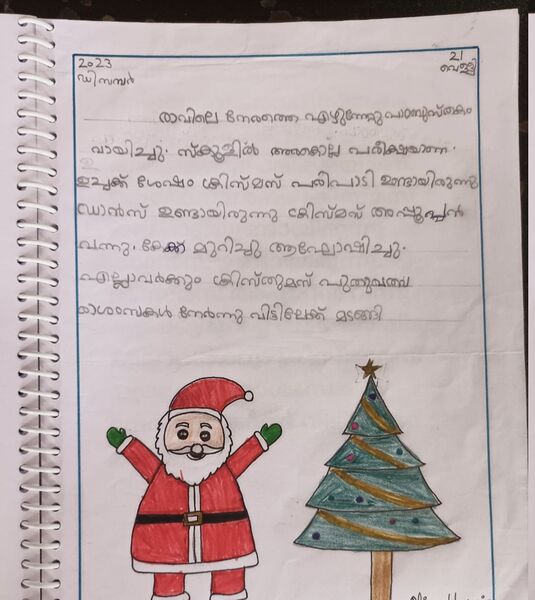 2023
ഡിസമ്പർ
21
വെള്ളി
രാവിലെ നേരത്തെ എഴുന്നേറ്റു പാഠപുസ്തകം
വായിച്ചു. സ്കൂളിൽ അരക്കൊല്ല പരീക്ഷയാണ്.
ഉച്ചക്ക് ശേഷം ക്രിസ്മസ് പരിപാടി ഉണ്ടായിരുന്നു
ഡാൻസ് ഉണ്ടായിരുന്നു ക്രിസ്മസ് അപ്പൂപ്പൻ
വന്നു. കേക്ക് മുറിച്ചു ആഘോഷിച്ചു.
എല്ലാവർക്കും ക്രിസ്തുമസ് പുതുവത്സര
ആശംസകൾ നേർന്നു വീട്ടിലേക്ക് മടങ്ങി